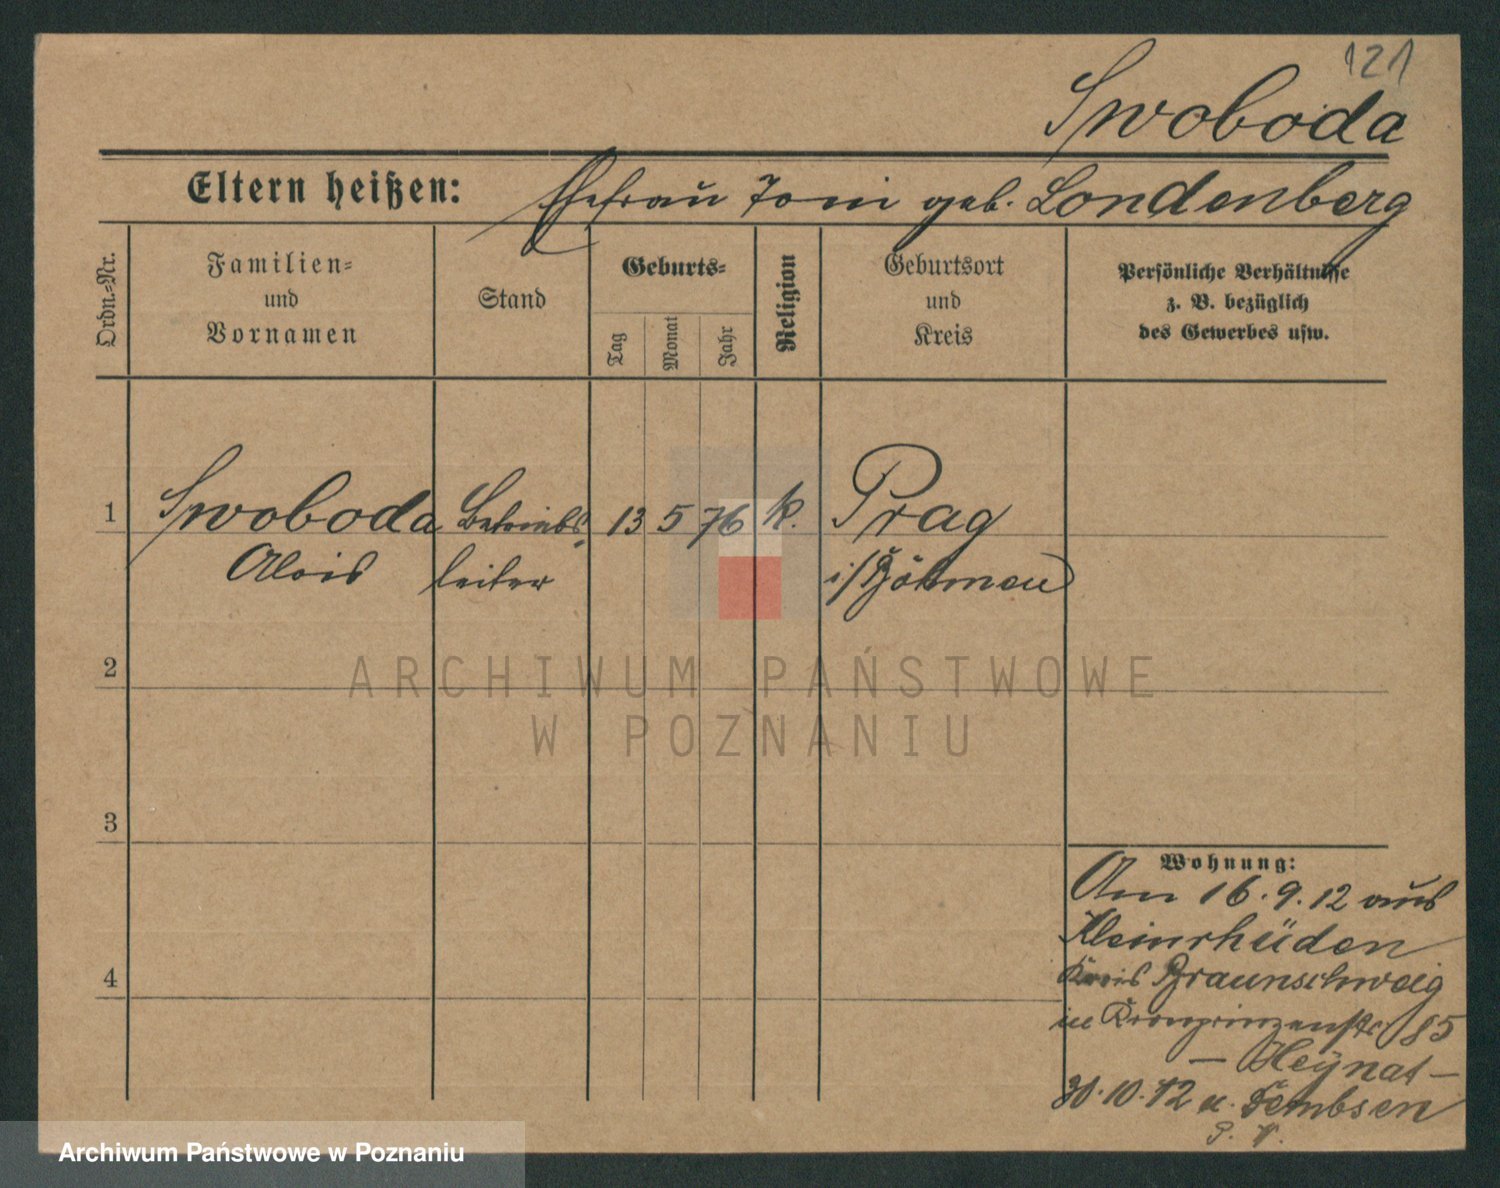 121
Swoboda
Eltern heißen: Ehefrau Toni geb. Londenberg
Ordn.=Nr.
Familien=
und
Vornamen
Stand
Geburts=
Tag
Monat
Jahr
Religion
Geburtsort
und
Kreis
Persönliche Verhältnisse
z. B. bezüglich
des Gewerbes usw.
1 Swoboda Betriebs= 13 5 76 k. Prag
Alois leiter i/Böhmen
2
3
4
Wohnung:
Am 16.9.12 aus
Kleinrhüden
Kreis Braunschweig
in Kronprinzenstr. 85
— Heynat —
30.10.12 n. Dembsen
ARCHIWUM PAŃSTWOWE
W POZNANIU
Archiwum Państwowe w Poznaniu